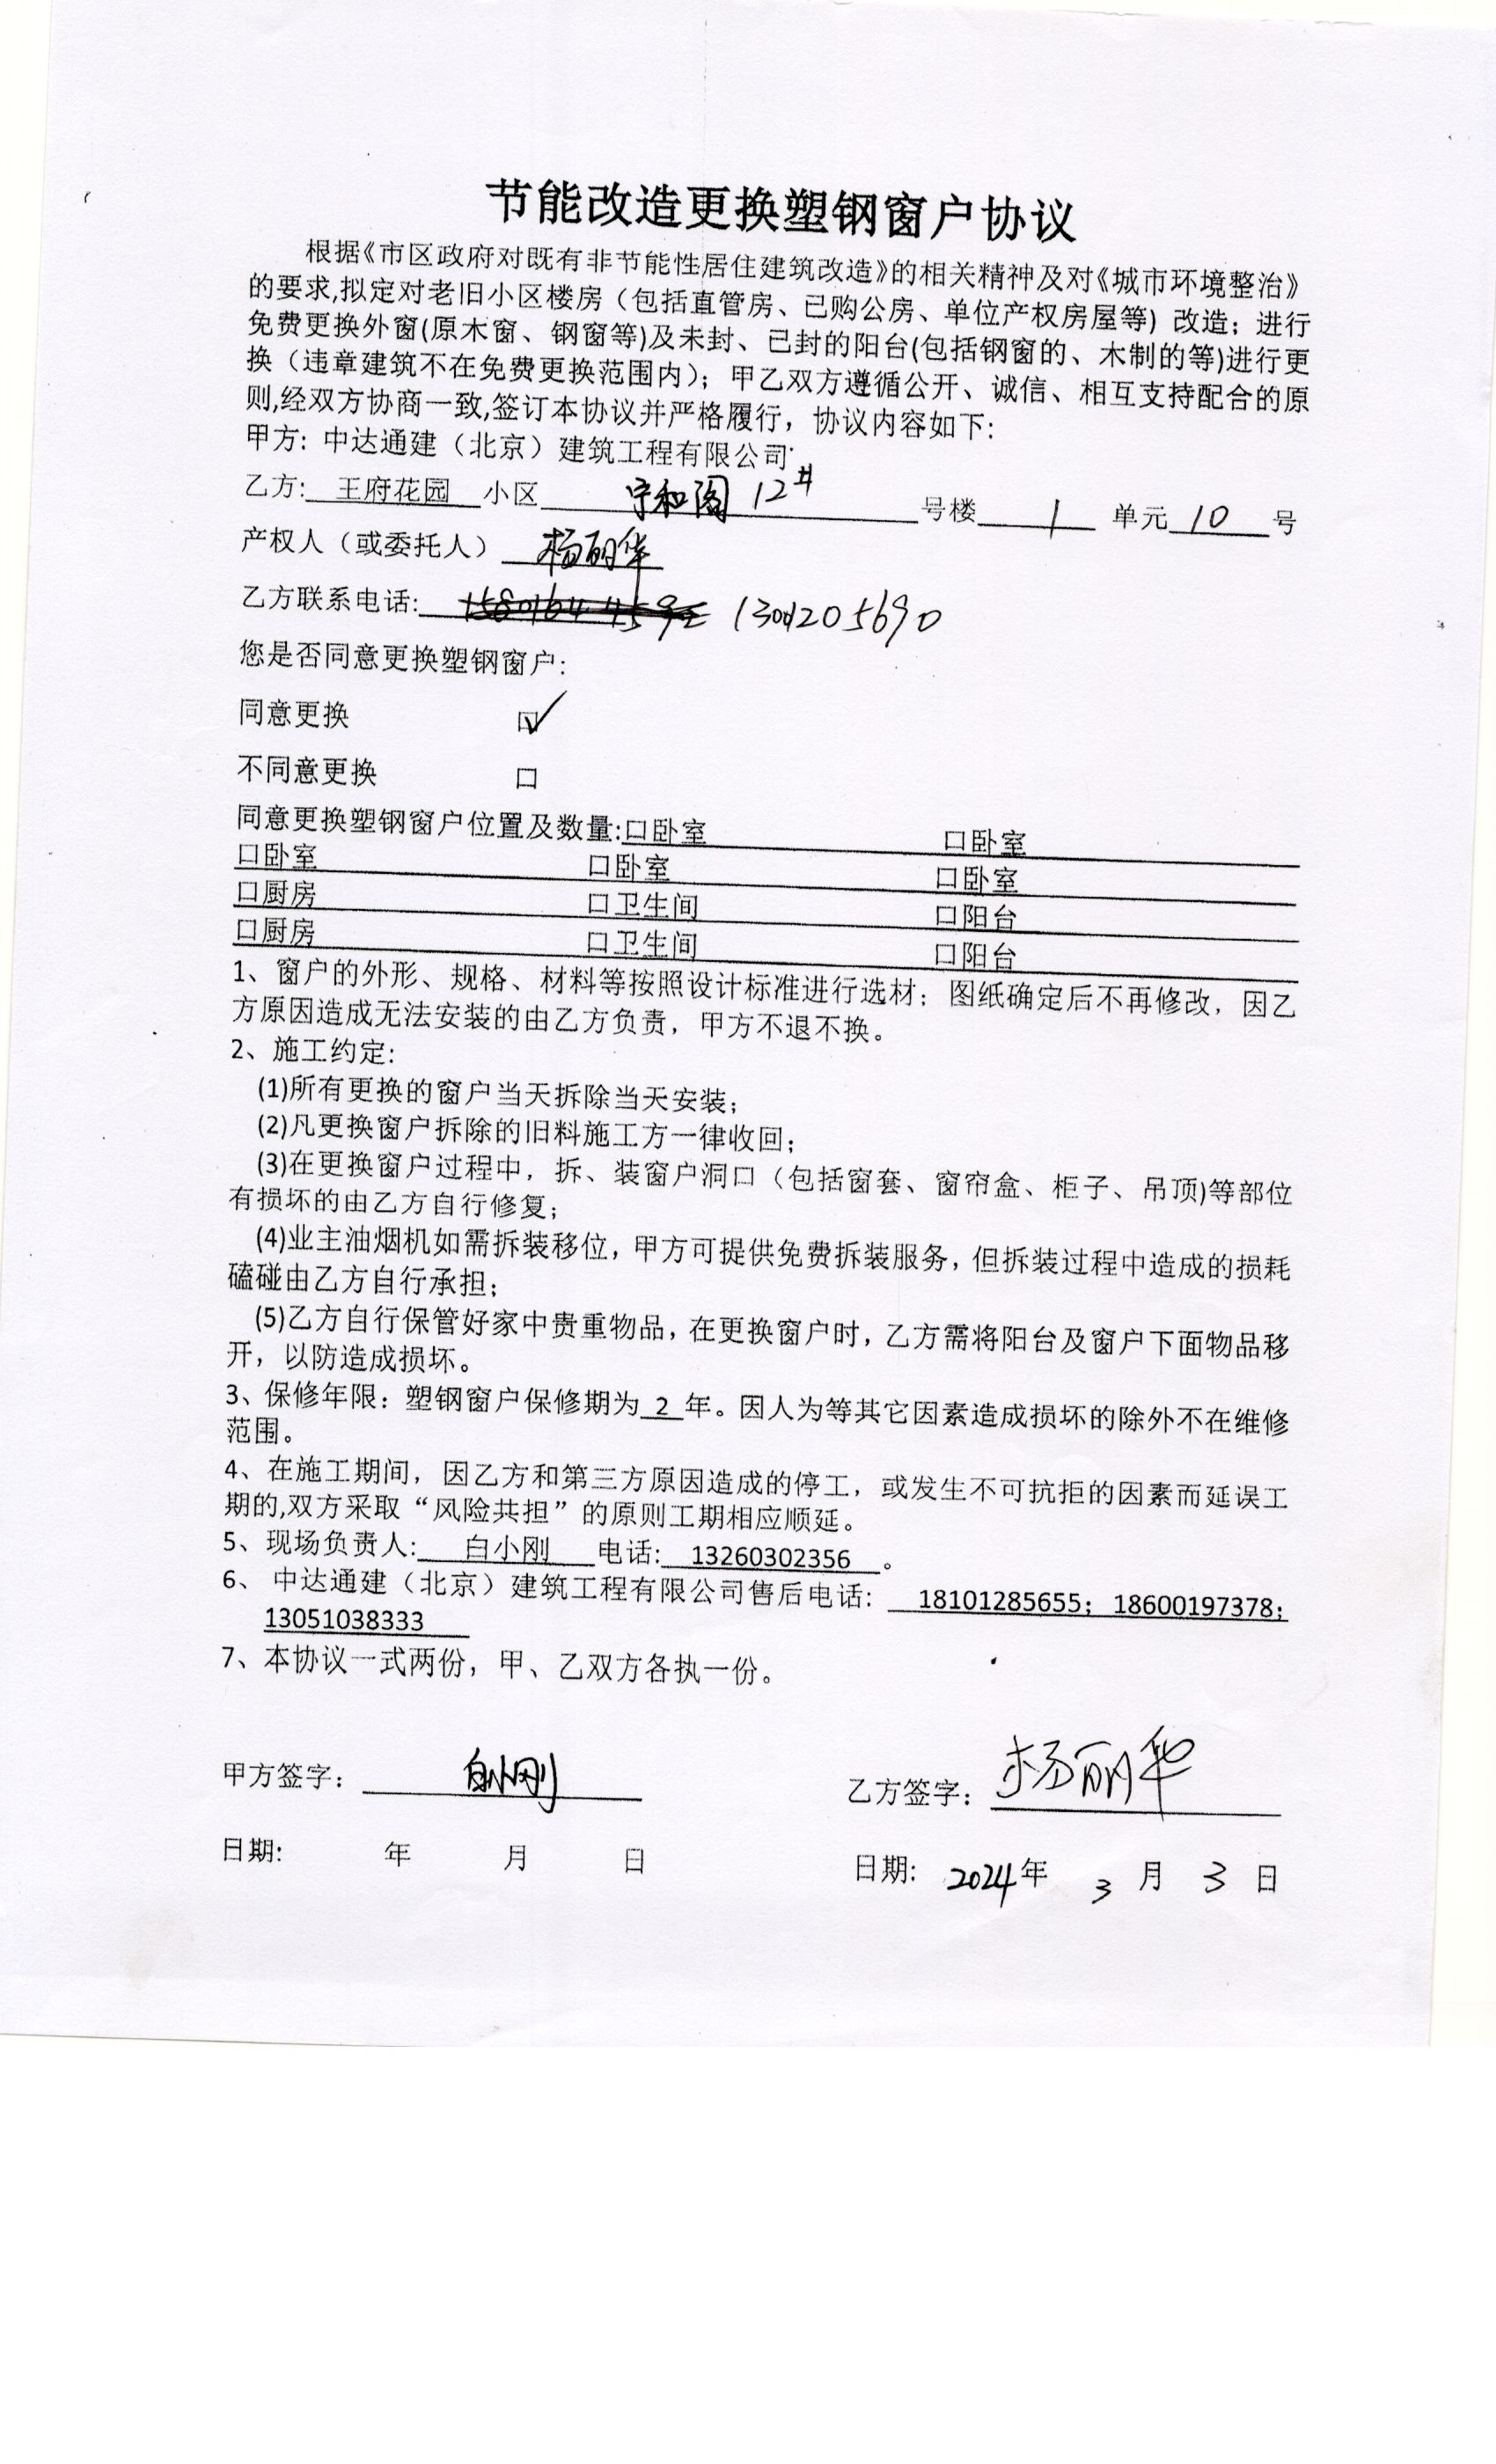 节能改造更换塑钢窗户协议
根据《市区政府对既有非节能性居住建筑改造》的相关精神及对《城市环境整治》
的要求,拟定对老旧小区楼房（包括直管房、已购公房、单位产权房屋等）改造；进行
免费更换外窗(原木窗、钢窗等)及未封、已封的阳台(包括钢窗的、木制的等)进行更
换（违章建筑不在免费更换范围内）；甲乙双方遵循公开、诚信、相互支持配合的原
则,经双方协商一致,签订本协议并严格履行，协议内容如下：
甲方：中达通建（北京）建筑工程有限公司
乙方: 王府花园 小区 宇和阁 12# 号楼 1 单元 10 号
产权人（或委托人） 杨丽华
乙方联系电话: 1300205690
您是否同意更换塑钢窗户:
同意更换 ☑
不同意更换 口
同意更换塑钢窗户位置及数量:口卧室 口卧室
口卧室 口卧室 口卧室
口厨房 口卫生间 口阳台
口厨房 口卫生间 口阳台
1、窗户的外形、规格、材料等按照设计标准进行选材；图纸确定后不再修改，因乙
方原因造成无法安装的由乙方负责，甲方不退不换。
2、施工约定:
(1)所有更换的窗户当天拆除当天安装；
(2)凡更换窗户拆除的旧料施工方一律收回；
(3)在更换窗户过程中，拆、装窗户洞口（包括窗套、窗帘盒、柜子、吊顶)等部位
有损坏的由乙方自行修复；
(4)业主油烟机如需拆装移位，甲方可提供免费拆装服务，但拆装过程中造成的损耗
磕碰由乙方自行承担；
(5)乙方自行保管好家中贵重物品，在更换窗户时，乙方需将阳台及窗户下面物品移
开，以防造成损坏。
3、保修年限：塑钢窗户保修期为 2 年。因人为等其它因素造成损坏的除外不在维修
范围。
4、在施工期间，因乙方和第三方原因造成的停工，或发生不可抗拒的因素而延误工
期的,双方采取“风险共担”的原则工期相应顺延。
5、现场负责人: 白小刚 电话: 13260302356 。
6、中达通建（北京）建筑工程有限公司售后电话: 18101285655；18600197378；
13051038333
7、本协议一式两份，甲、乙双方各执一份。
甲方签字： 白小刚 乙方签字： 杨丽华
日期: 年 月 日 日期: 2024年 3 月 3 日